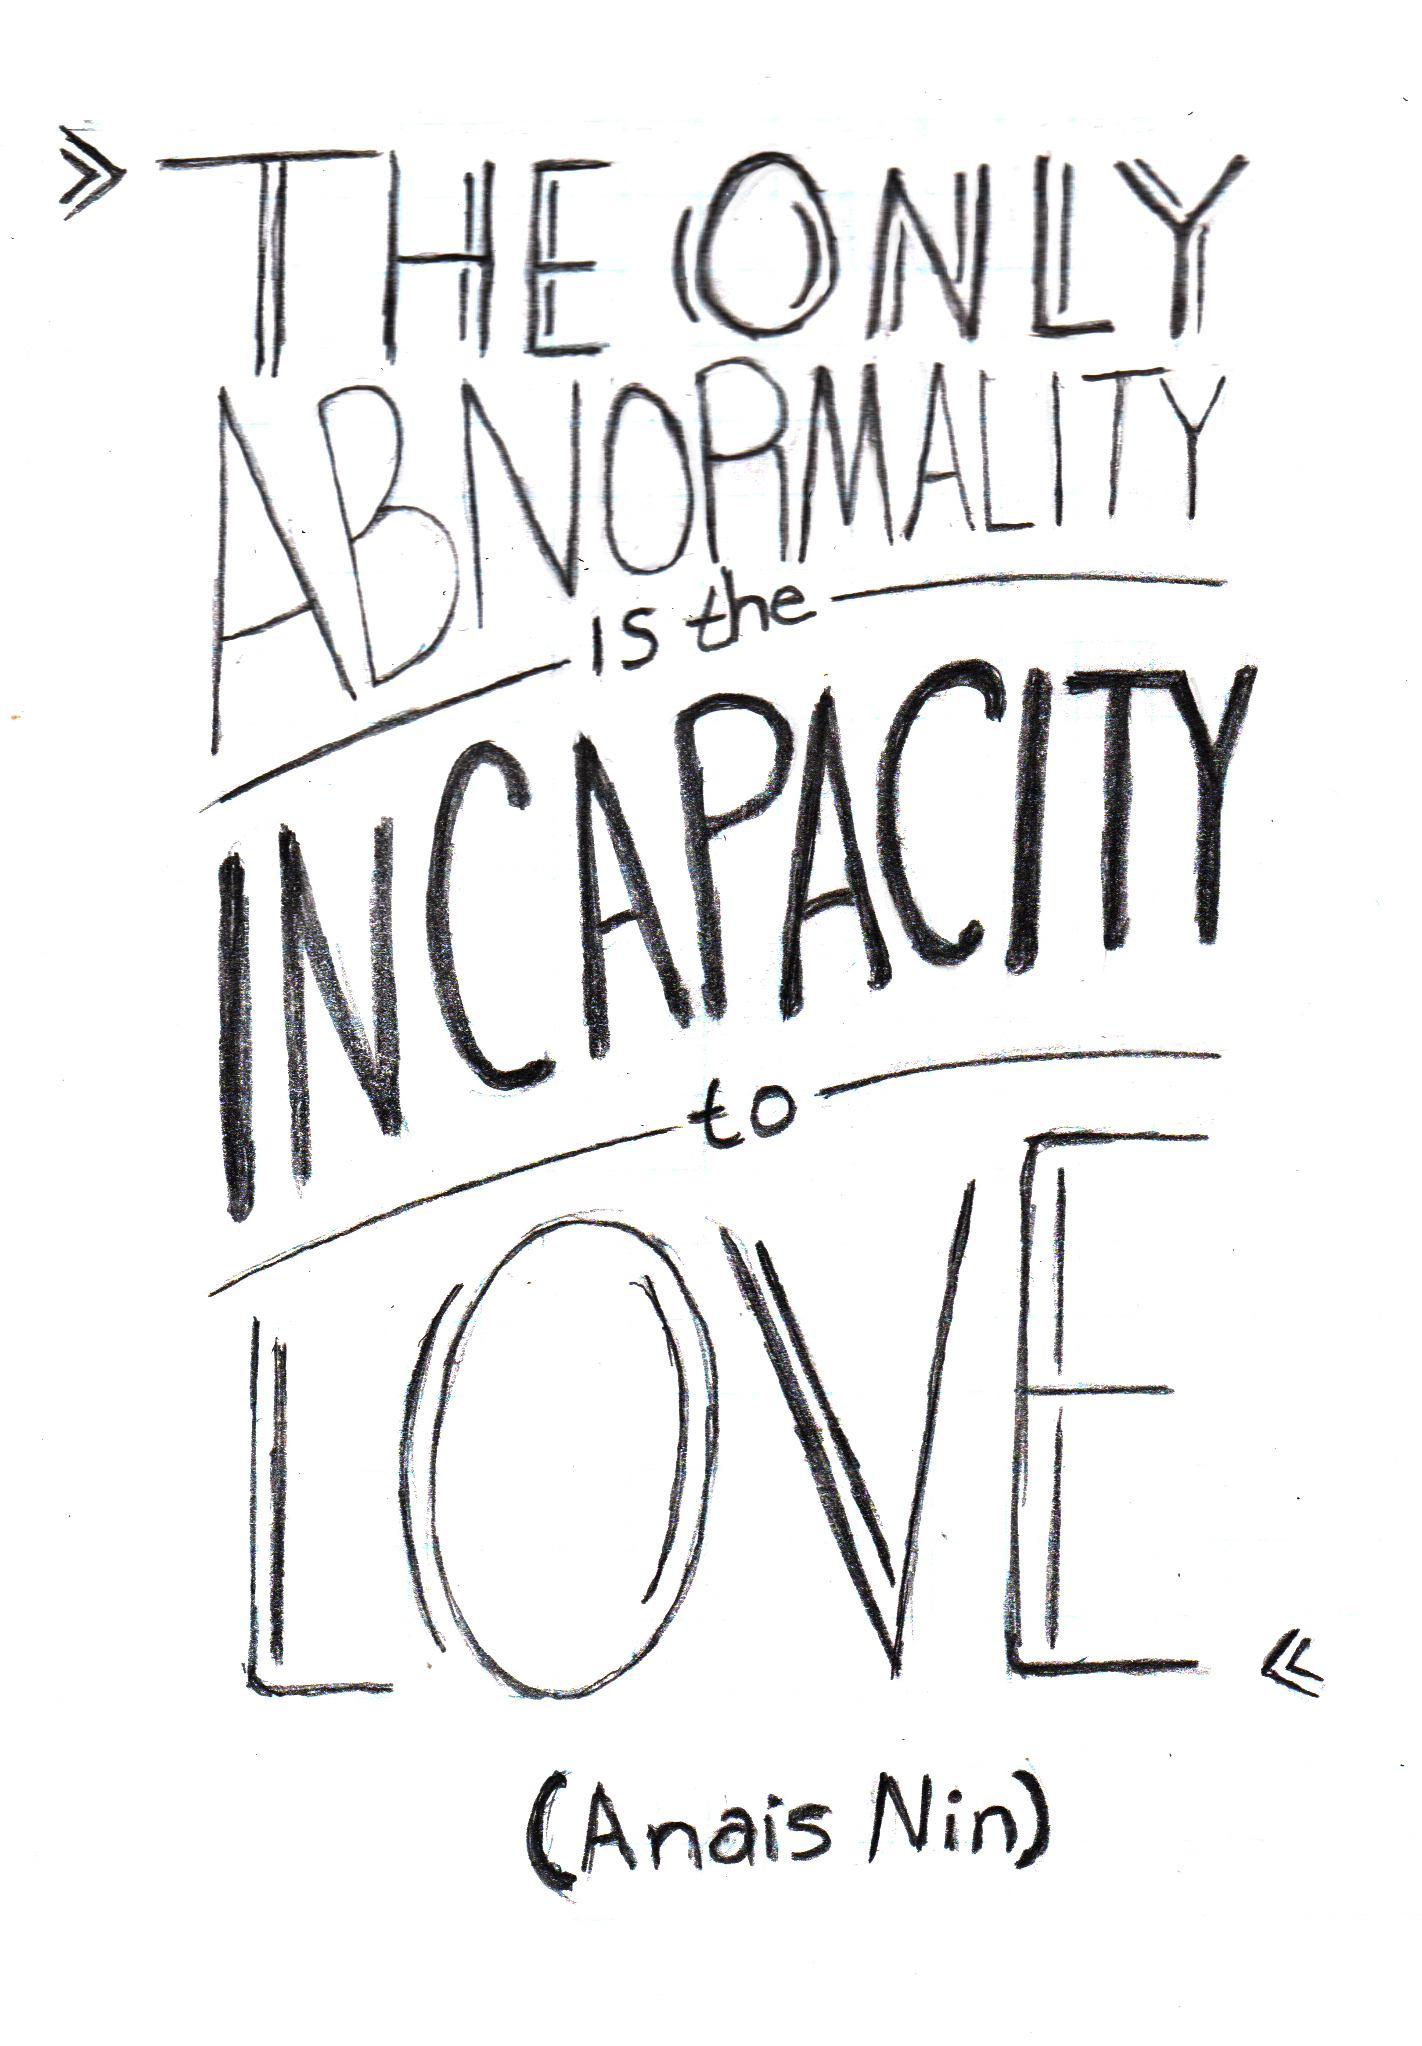 » THE ONLY
ABNORMALITY
is the
INCAPACITY
to
LOVE «
(Anais Nin)